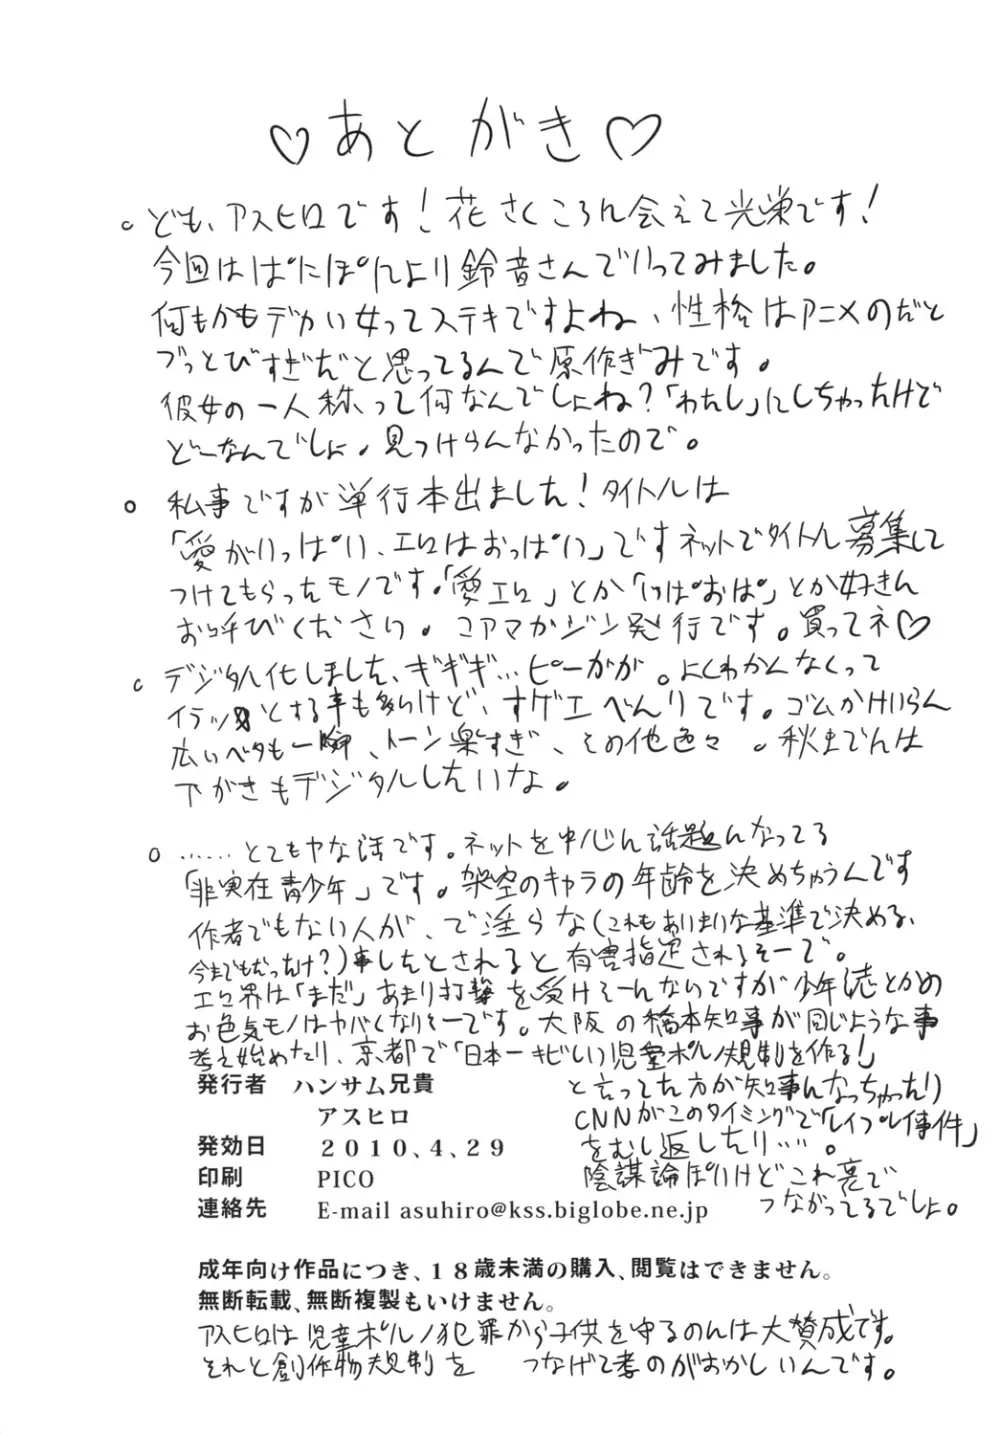 ♡あとがき♡
○ども、アスヒロです!花さくころに会えて光栄です!
今回はぱにぽにより鈴音さんでいってみました。
何もかもデカい女ってステキですよね、性格はアニメのだと
ブっとびすぎだと思ってるんで原作ぎみです。
彼女の一人称って何なんでしょね?「わたし」にしちゃったけど
どーなんでしょ。見つけらんなかったので。
○私事ですが単行本出ました!タイトルは
「愛がいっぱい、エロはおっぱい」ですネットでタイトル募集して
つけてもらったモノです。「愛エロ」とか「いぱおぱ」とか好きに
お呼びください。コアマガジン発行です。買ってネ♡
○デジタル化しました、ギギギ…ピーガガ。よくわかんなくって
イラッとする事も多いけど、すげエべんりです。ゴムかけいらん
広いベタも一瞬、トーン楽すぎ、その他色々。秋までには
下がきもデジタルしたいな。
○……とてもヤな話です。ネットを中心に話題になってる
「非実在青少年」です。架空のキャラの年齢を決めちゃうんです
作者でもない人が、で淫らな(これもあいまいな基準で決める、
今までもだっけ?)事したとされると有害指定されるそーで。
エロ界は「まだ」あまり打撃を受けそーにないですが少年誌とかの
お色気モノはヤバくなりそーです。大阪の橋本知事が同じような事
考え始めたり、京都で「日本一キビしい児童ポルノ規制を作る!」
と言ってた方が知事になっちゃったり
CNNがこのタイミングで「レイプレイ事件」
をむし返したり…。
陰謀論ぽいけどこれ裏で
つながってるでしょ。
発行者 ハンサム兄貴
アスヒロ
発効日 2010、4、29
印刷 PICO
連絡先 E-mail asuhiro@kss.biglobe.ne.jp
成年向け作品につき、18歳未満の購入、閲覧はできません。
無断転載、無断複製もいけません。
アスヒロは児童ポルノ犯罪から子供を守るのには大賛成です。
それと創作物規制を つなげて考のがおかしいんです。